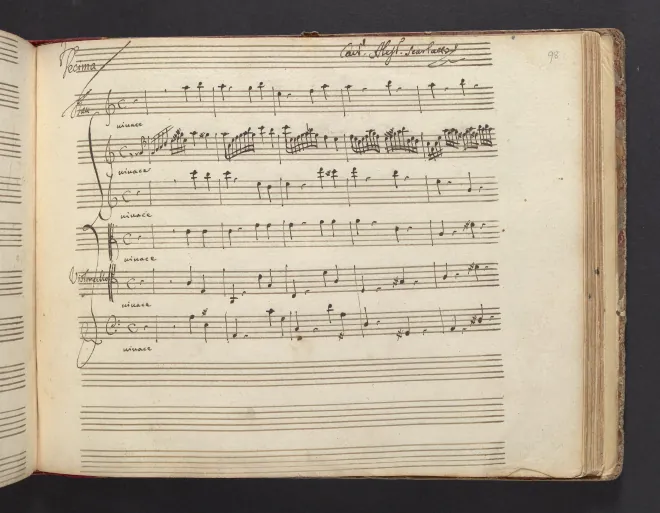 Decima
Cavr. Aless. Scarlatti
98
Flau
vivace
vivace
vivace
vivace
Violoncello
vivace
vivace